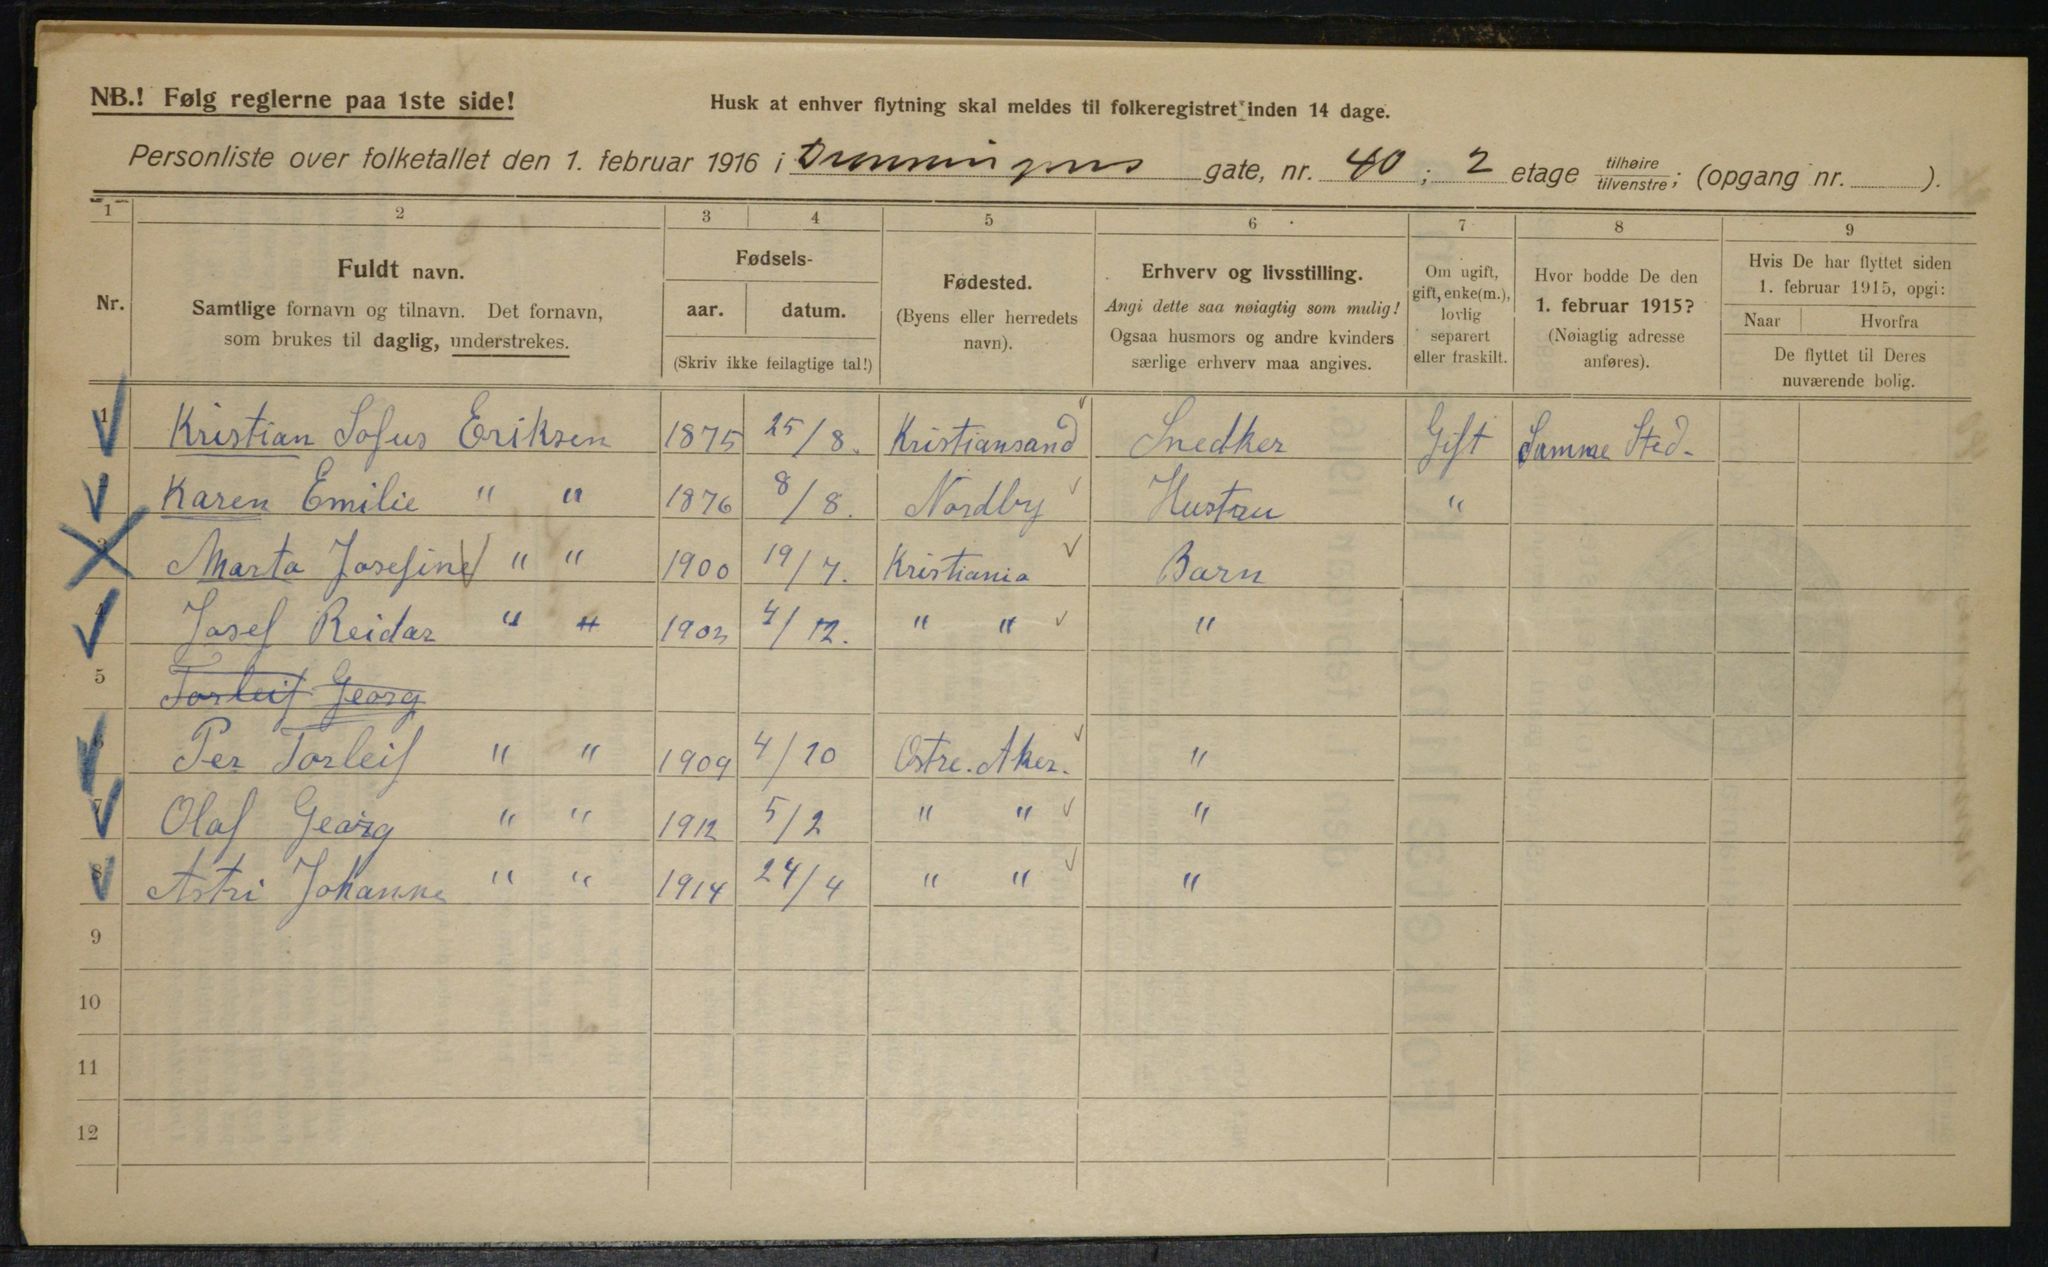 NB.! Følg reglerne paa 1ste side!
Husk at enhver flytning skal meldes til folkeregistret inden 14 dage.
Personliste over folketallet den 1. februar 1916 i Dronningens gate, nr. 40; 2 etage tilhøire/tilvenstre; (opgang nr. ).
1 2 3 4 5 6 7 8 9
Nr.
Fuldt navn.
Samtlige fornavn og tilnavn. Det fornavn,
som brukes til daglig, understrekes.
Fødsels-
aar. datum.
(Skriv ikke feilagtige tal!)
Fødested.
(Byens eller herredets
navn).
Erhverv og livsstilling.
Angi dette saa nøiagtig som mulig!
Ogsaa husmors og andre kvinders
særlige erhverv maa angives.
Om ugift,
gift, enke(m.),
lovlig
separert
eller fraskilt.
Hvor bodde De den
1. februar 1915?
(Nøiagtig adresse
anføres).
Hvis De har flyttet siden
1. februar 1915, opgi:
Naar Hvorfra
De flyttet til Deres
nuværende bolig.
1 Kristian Sofus Eriksen 1875 25/8. Kristiansand Snedker Gift Samme Sted.
2 Karen Emilie " " 1876 8/8. Nordby Hustru "
3 Marta Josefine " " 1900 19/7. Kristiania Barn
4 Josef Reidar " " 4/12. " " "
5 Torleif Georg
6 Per Torleif " " 1909 4/10 Østre. Aker. "
7 Olaf Georg " " 1912 5/2 " " "
8 Astri Johanne " " 1914 24/4 " " "
9
10
11
12